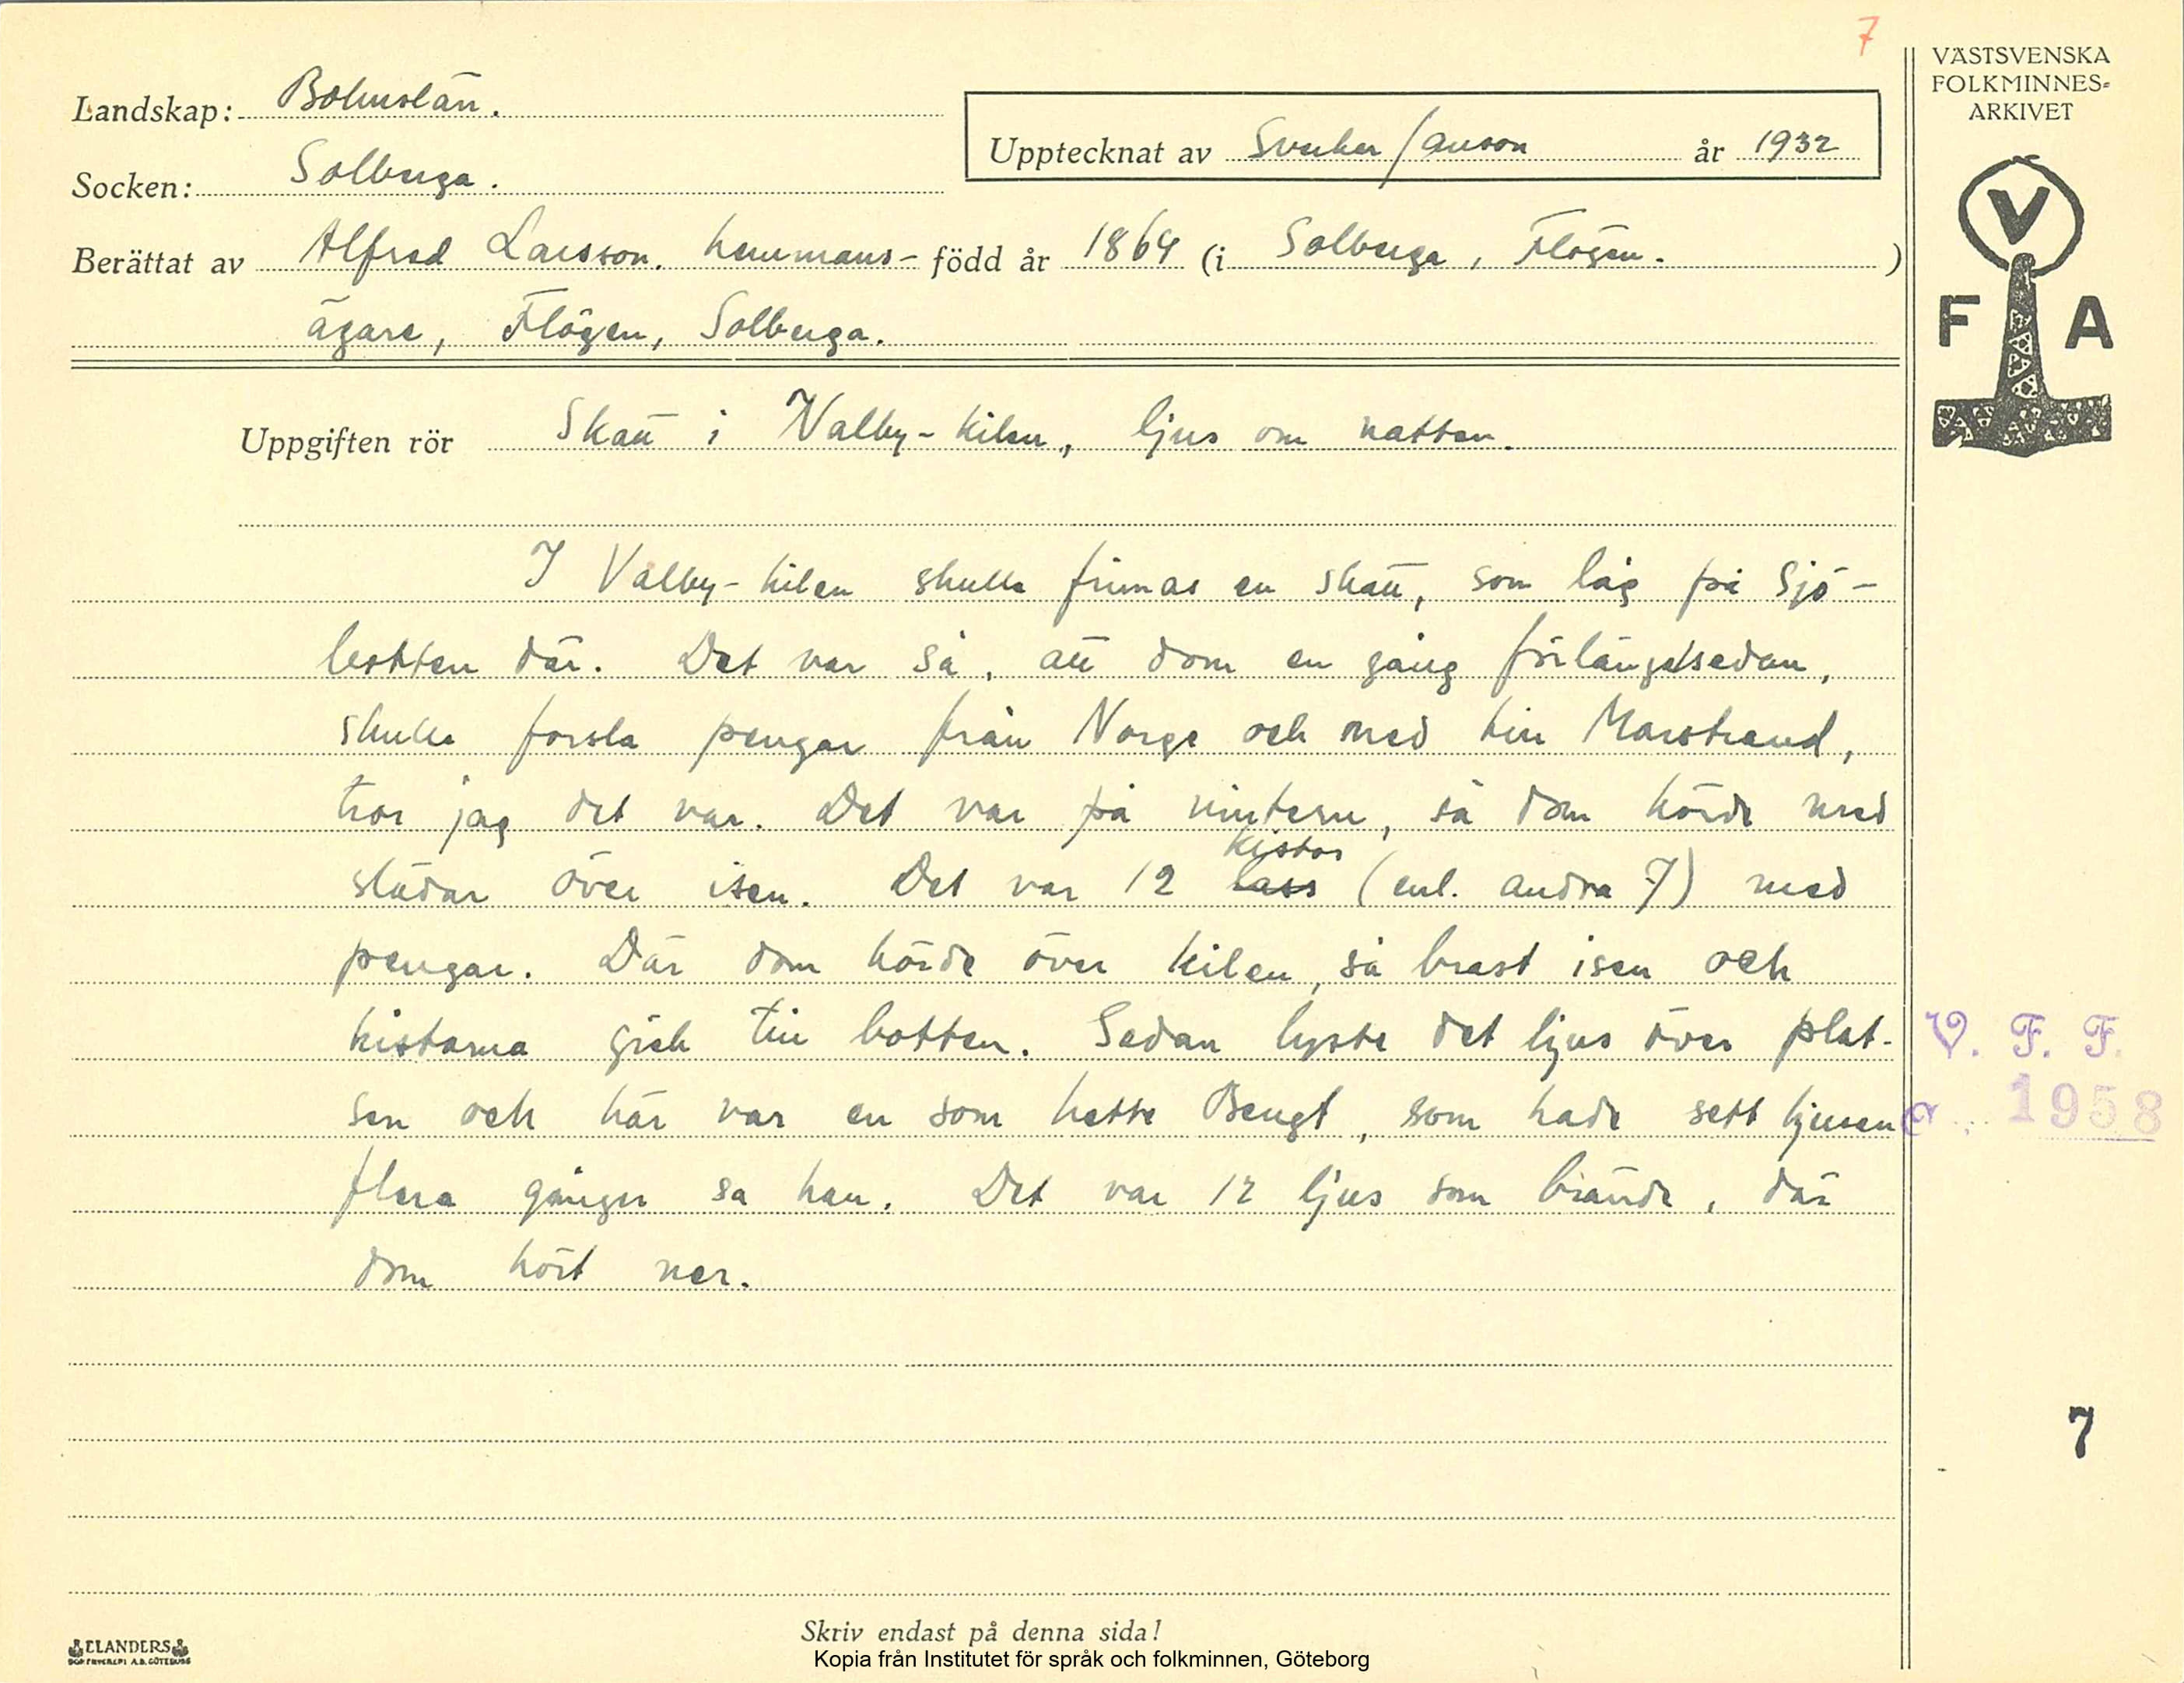 7
VÄSTSVENSKA
FOLKMINNES-
ARKIVET
V
F A
Landskap: Bohuslän.
Upptecknat av Sverker Janson år 1932
Socken: Solberga.
Berättat av Alfred Larsson. hemmans- född år 1864 (i Solberga, Flögen. )
ägare, Flögen, Solberga.
Uppgiften rör Skatt i Valby-kilen, ljus om natten.
I Valby-kilen skulle finnas en skatt, som låg på sjö-
botten där. Det var så, att dom en gång förlängelsedan,
skulle forsla pengar från Norge och ned till Marstrand,
tror jag det var. Det var på vintern, så dom körde med
kistor
slädar över isen. Det var 12 lass (enl. andra 7) med
pengar. Där dom körde över kilen, så brast isen och
kistorna gick till botten. Sedan lyste det ljus över plat-
sen och här var en som hette Bengt, som hade sett ljusen
flera gånger sa han. Det var 12 ljus som brände, där
dom kört ner.
V. F. F.
1958
7
ELANDERS
BOKTRYCKERI A.B. GÖTEBORG
Skriv endast på denna sida!
Kopia från Institutet för språk och folkminnen, Göteborg